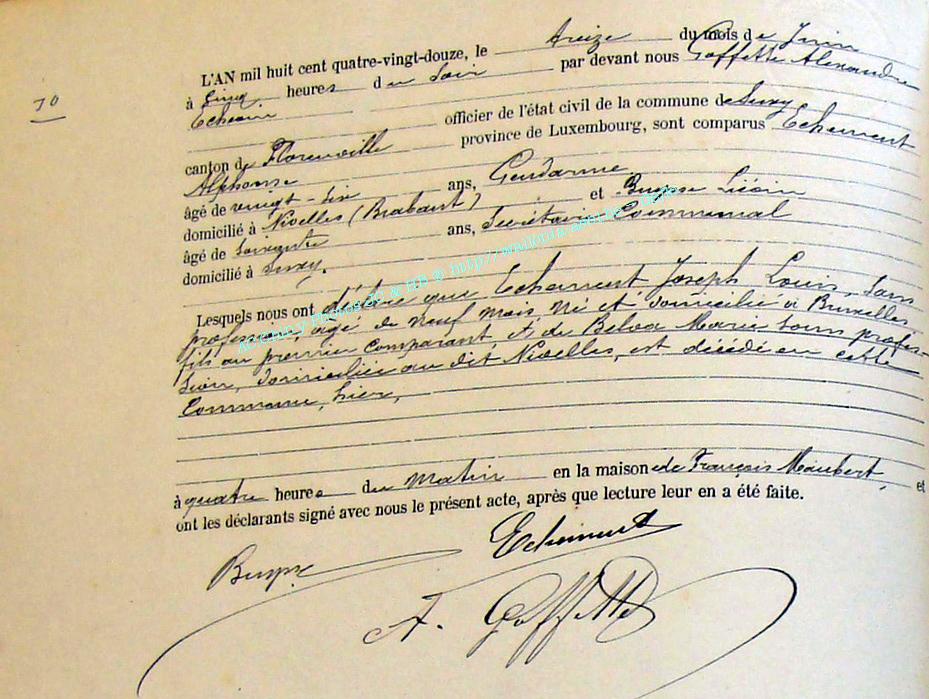 10
L'AN mil huit cent quatre-vingt-douze, le treize du mois de Juin
à cinq heures du soir par devant nous Goffette Alexandre
Echevin officier de l'état civil de la commune de Suxy
canton de Florenville province de Luxembourg, sont comparus Echement
Alphonse
âgé de vingt-six ans, Gendarme
domicilié à Nivelles (Brabant) et
âgé de soixante ans, Secrétaire Communal
domicilié à Suxy.
Lesquels nous ont déclaré que Echement Joseph Louis, sans
profession, âgé de neuf mois, né et domicilié à Bruxelles
fils au premier comparant, et de Belva Marie sans profes-
sion, domiciliée au dit Nivelles, est décédé en cette
Commune, hier,
à quatre heures du matin en la maison de François Maubert, et
ont les déclarants signé avec nous le présent acte, après que lecture leur en a été faite.
Echement
A. Goffette